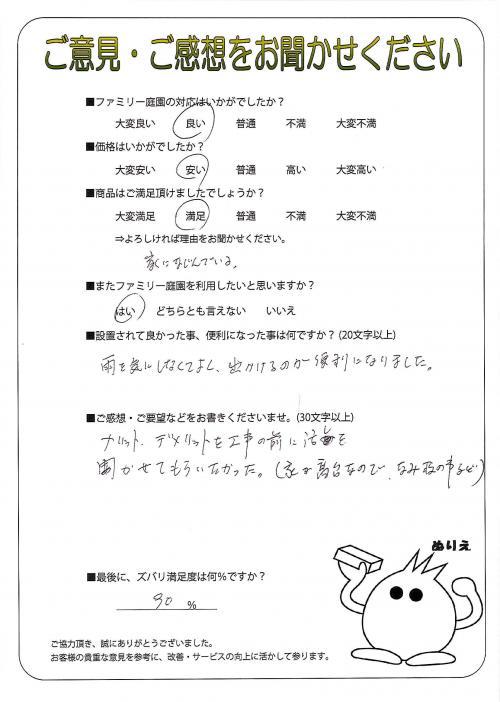 ご意見・ご感想をお聞かせください
■ファミリー庭園の対応はいかがでしたか？
大変良い 良い 普通 不満 大変不満
■価格はいかがでしたか？
大変安い 安い 普通 高い 大変高い
■商品はご満足頂けましたでしょうか？
大変満足 満足 普通 不満 大変不満
⇒よろしければ理由をお聞かせください。
家になじんでいる。
■またファミリー庭園を利用したいと思いますか？
はい どちらとも言えない いいえ
■設置されて良かった事、便利になった事は何ですか？(20文字以上)
雨を気にしなくてよく、出かけるのが便利になりました。
■ご感想・ご要望などをお書きくださいませ。(30文字以上)
メリット、デメリットを工事の前に話を
聞かせてもらいたかった。(家が高台なので、なみ板の事など)
ぬりえ
■最後に、ズバリ満足度は何%ですか？
90 %
ご協力頂き、誠にありがとうございました。
お客様の貴重な意見を参考に、改善・サービスの向上に活かして参ります。